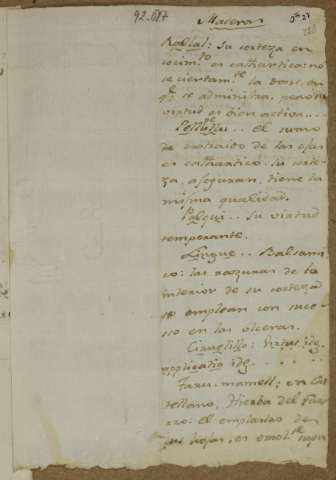 92.687
Maderas
nº 27
Rablal: su corteza en
cocim.to es cathartica: no
se ciertam.te la dosis, en
q.e se administra, pero su
virtud es bien activa...
Pelluju... el sumo
extraido de las ojas
es cathartico. su corte-
za, aseguran, tiene la
misma qualidad.
Palqui.. su virtud
temperante.
Lingue.. Balsami-
co: las raspuras de lo
interior de su corteza
se emplean con suce-
so en las ulceras.
Ciruelillo: Virtus id.
applicatio id.
mamell: en Cas-
tellano, Hierba del
rro: el emplasto de
sus hojas, es emol.te supu-